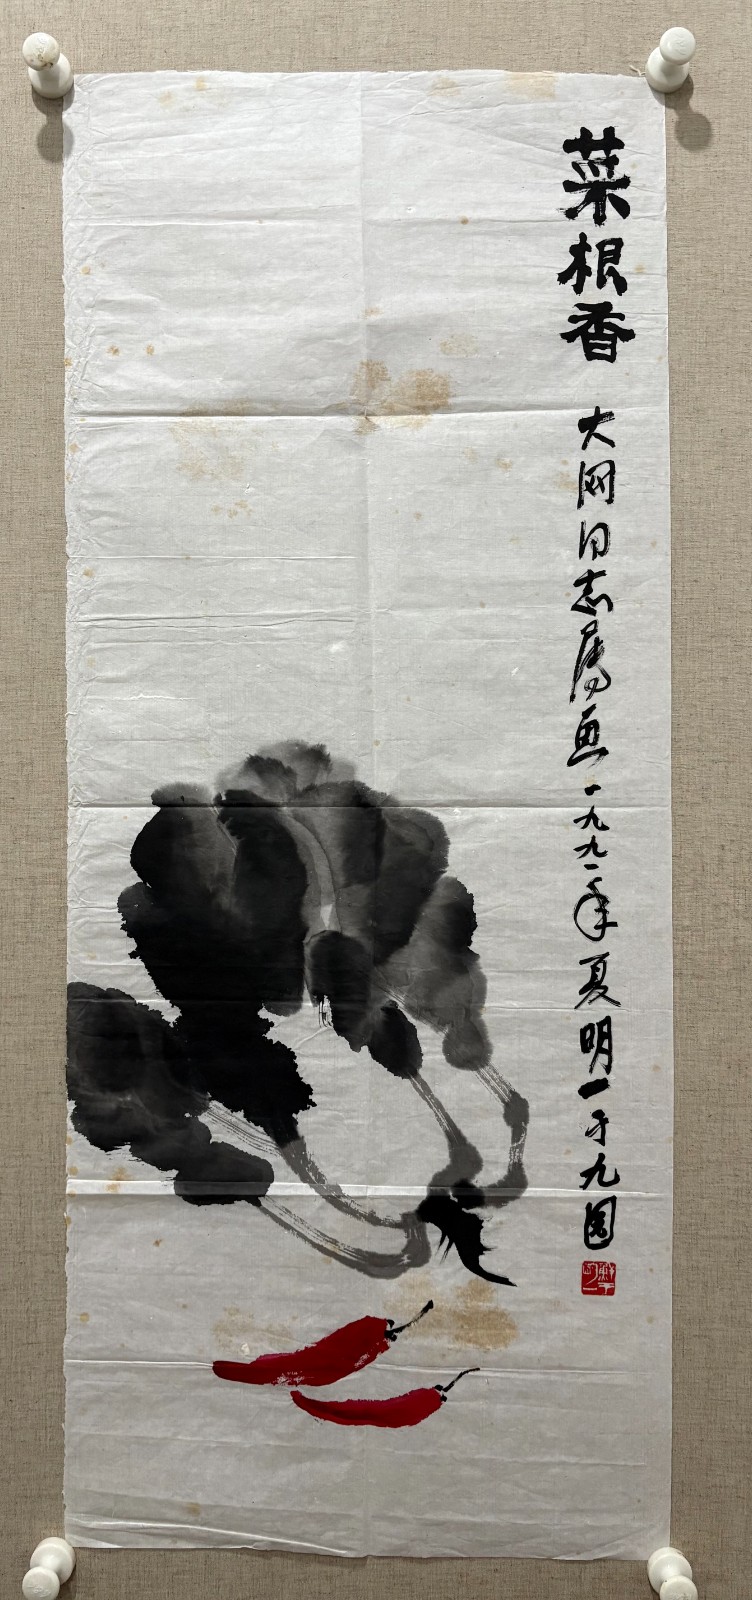 菜根香
大网同志属画一九九一年夏明一于九园